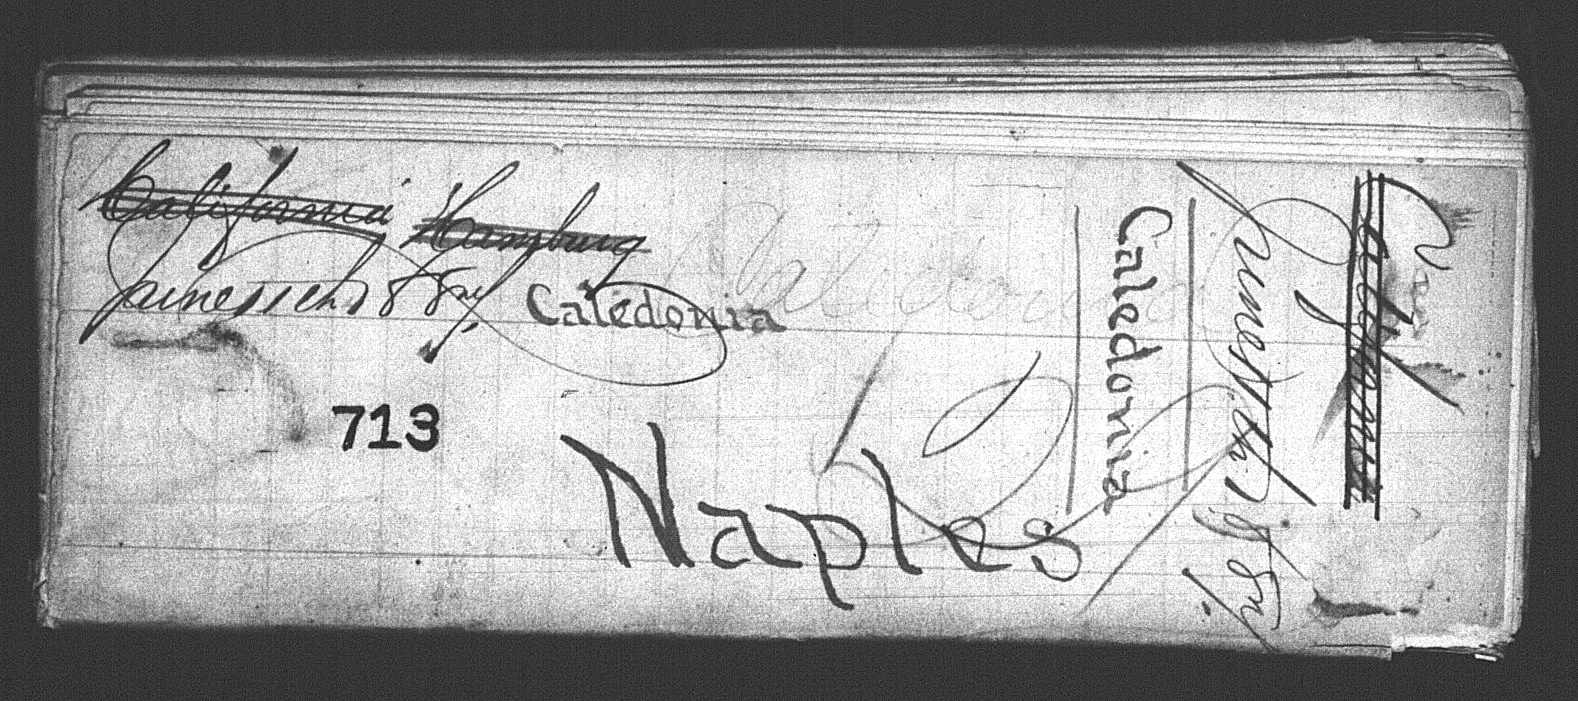 California Hamburg
June 11th 188
Caledonia
Caledonia
713
Naples
California
June 11th 188
Caledonia